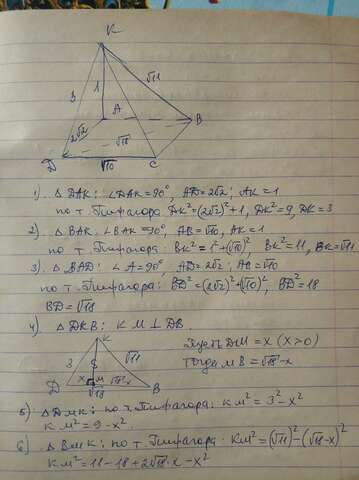 K
3
1
√11
A
B
2√2
√18
D
√10
C
1) Δ DAK: ∠DAK = 90°, AD = 2√2; AK = 1
по т. Пифагора: DK² = (2√2)² + 1, DK² = 9, DK = 3
2) Δ BAK: ∠BAK = 90°, AB = √10, AK = 1
по т. Пифагора: BK² = 1² + (√10)², BK² = 11, BK = √11
3) Δ BAD: ∠A = 90°, AD = 2√2; AB = √10
по т. Пифагора: BD² = (2√2)² + (√10)², BD² = 18
BD = √18
4) Δ DKB: KM ⊥ DB.
K
3
√11
D
x
M
√18-x
B
√18
Пусть DM = x (x>0)
Тогда MB = √18 - x
5) Δ DMK: по т. Пифагора: KM² = 3² - x²
KM² = 9 - x².
6) Δ BMK: по т. Пифагора: KM² = (√11)² - (√18 - x)²
KM² = 11 - 18 + 2√18 · x - x²